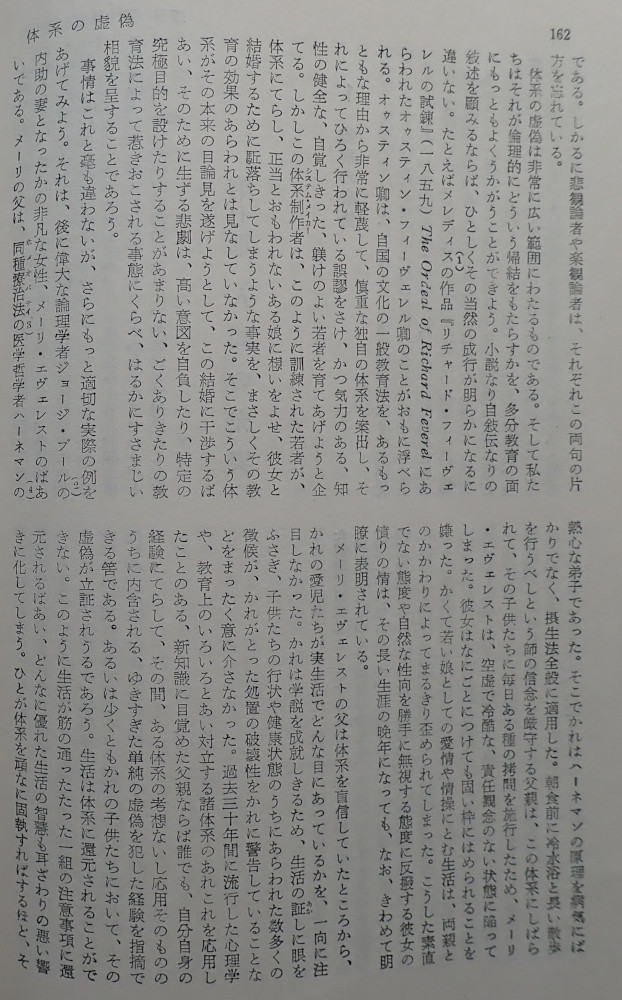 162
体系の虚偽
である。しかるに悲観論者や楽観論者は、それぞれこの両句の片
方を忘れている。
体系の虚偽は非常に広い範囲にわたるものである。そして私た
ちはそれが倫理的にどういう帰結をもたらすかを、多分教育の面
にもっともよくうかがうことができよう。小説なり自叙伝なりの
叙述を顧みるならば、ひとしくその当然の成行が明らかになるに
違いない。たとえばメレディスの作品『リチャード・フィーヴェ
レルの試煉』(一八五九) The Ordeal of Richard Feverel にあ
らわれたオゥスティン・フィーヴェレル卿のことがおもに浮べら
れる。オゥスティン卿は、自国の文化の一般教育法を、あるもっ
ともな理由から非常に軽蔑して、慎重な独自の体系を案出し、そ
れによってひろく行われている誤謬をさけ、かつ気力のある、知
性の健全な、自覚しきった、躾けのよい若者を育てあげようと企
てる。しかしこの体系制作者は、このように訓練された若者が、
体系にてらし、正当とおもわれないある娘に想いをよせ、彼女と
結婚するために駈落ちしてしまうような事実を、まさしくその教
育の効果のあらわれとは見なしていなかった。そこでこういう体
系がその本来の目論見を遂げようとして、この結婚に干渉するば
あい、そのために生ずる悲劇は、高い意図を自負したり、特定の
究極目的を設けたりすることがあまりない、ごくありきたりの教
育法によって惹きおこされる事態にくらべ、はるかにすさまじい
相貌を呈することであろう。
事情はこれと毫も違わないが、さらにもっと適切な実際の例を
あげてみよう。それは、後に偉大な論理学者ジョージ・ブールの
内助の妻となったかの非凡な女性、メーリ・エヴェレストのばあ
いである。メーリの父は、同種療治法の医学哲学者ハーネマンの
熱心な弟子であった。そこでかれはハーネマンの原理を病気にば
かりでなく、摂生法全般に適用した。朝食前に冷水浴と長い散歩
を行うべしという師の信念を厳守する父親は、この体系にしばら
れて、その子供たちに毎日ある種の拷問を施行したため、メーリ
・エヴェレストは、空虚で冷酷な、責任観念のない状態に陥って
しまった。彼女はなにごとにつけても固い枠にはめられることを
嫌った。かくて若い娘としての愛情や情操にとむ生活は、両親と
のかかわりによってまるきり歪められてしまった。こうした素直
でない態度や自然な性向を勝手に無視する態度に反撥する彼女の
憤りの情は、その長い生涯の晩年になっても、なお、きわめて明
瞭に表明されている。
メーリ・エヴェレストの父は体系を盲信していたところから、
かれの愛児たちが実生活でどんな目にあっているかを、一向に注
目しなかった。かれは学説を成就しきるため、生活の証しに眼を
ふさぎ、子供たちの行状や健康状態のうちにあらわれた数多くの
徴候が、かれがとった処置の破壊性をかれに警告していることな
どをまったく意に介さなかった。過去三十年間に流行した心理学
や、教育上のいろいろとあい対立する諸体系のあれこれを応用し
たことのある、新知識に目覚めた父親ならば誰でも、自分自身の
経験にてらして、その間、ある体系の考想ないし応用そのものの
うちに内含される、ゆきすぎた単純の虚偽を犯した経験を指摘で
きる筈である。あるいは少くともかれの子供たちにおいて、その
虚偽が立証されうるであろう。生活は体系に還元されることがで
きない。このように生活が筋の通ったたった一組の注意事項に還
元されるばあい、どんなに優れた生活の智慧も耳ざわりの悪い響
きに化してしまう。ひとが体系を頑なに固執すればするほど、そ